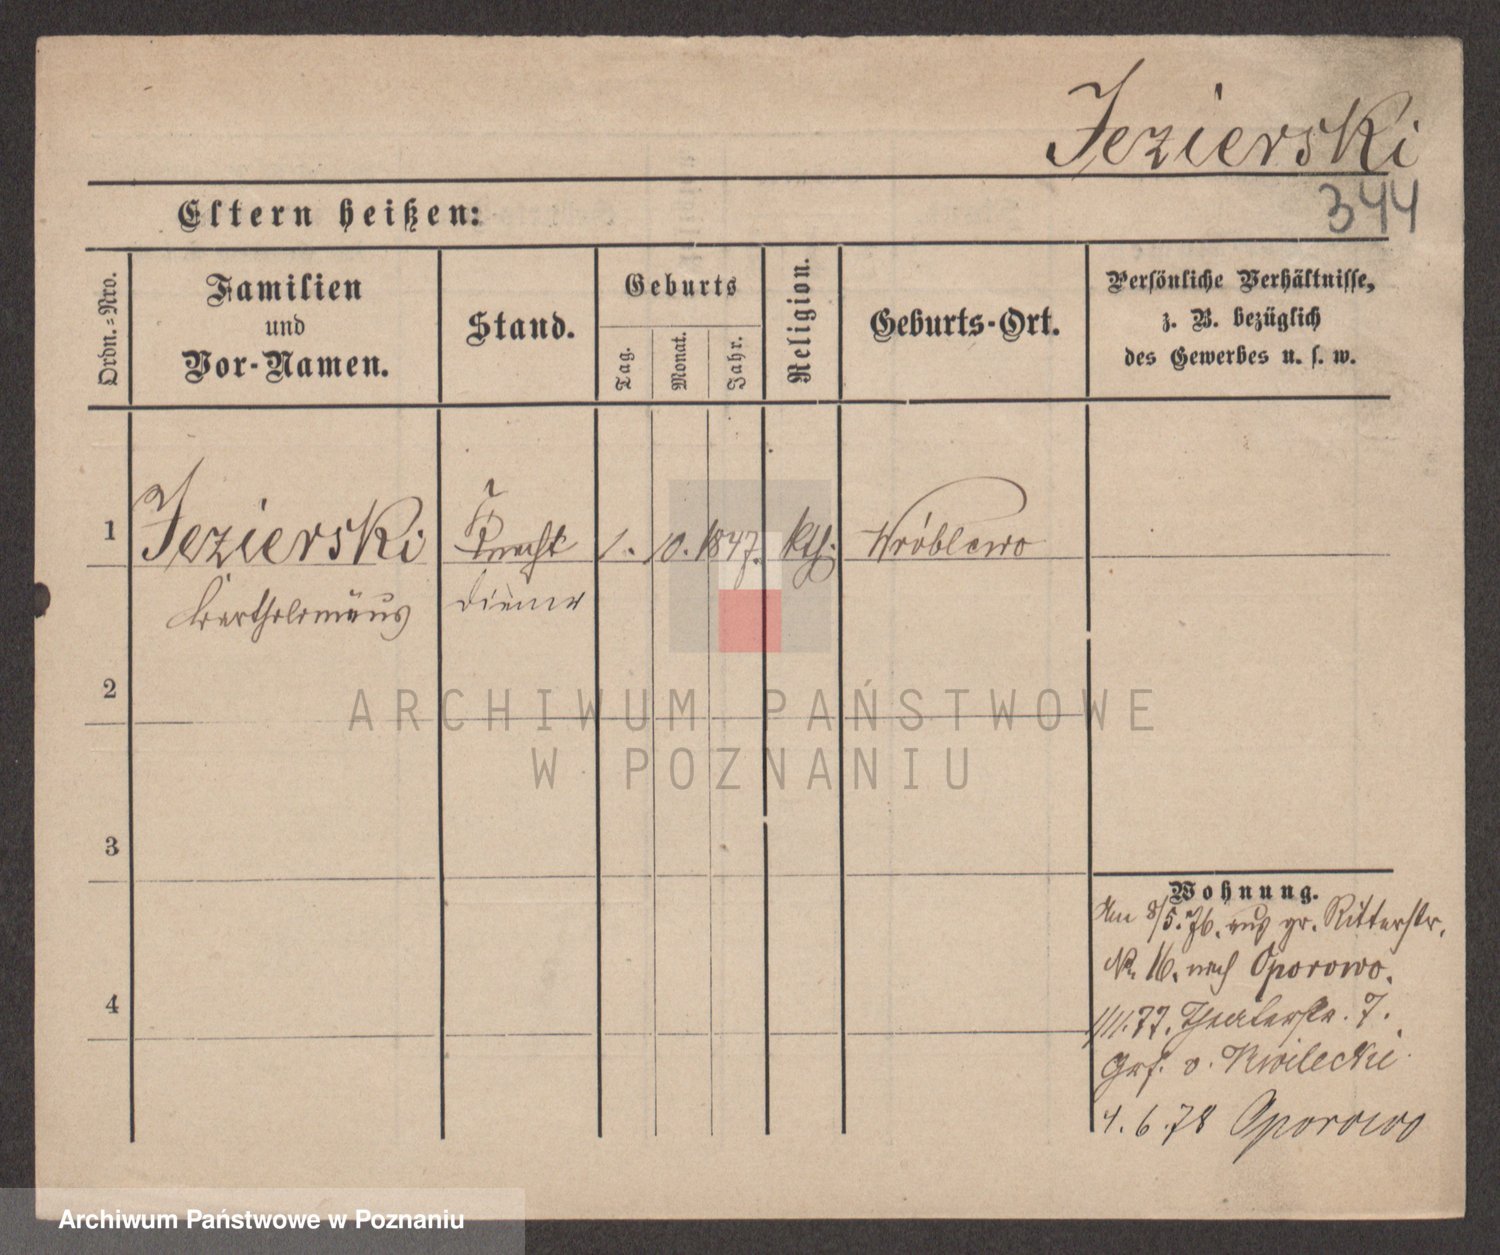 Jezierski
344
Eltern heißen:
Ordn.-Nro.
Familien
und
Vor-Namen.
Stand.
Geburts
Tag.
Monat.
Jahr.
Religion.
Geburts-Ort.
Persönliche Verhältnisse,
z. B. bezüglich
des Gewerbes u. s. w.
1 Jezierski Knecht 1. 10. 1847. kth. Wróblewo
Bartholomäus Diener
2
3
4
Wohnung.
Am 8/5.76. aus gr. Ritterstr.
No. 16. nach Oporowo.
1/11.77. Theaterstr. 7.
Grf. v. Kwilecki
4.6.78 Oporowo
ARCHIWUM PAŃSTWOWE
W POZNANIU
Archiwum Państwowe w Poznaniu